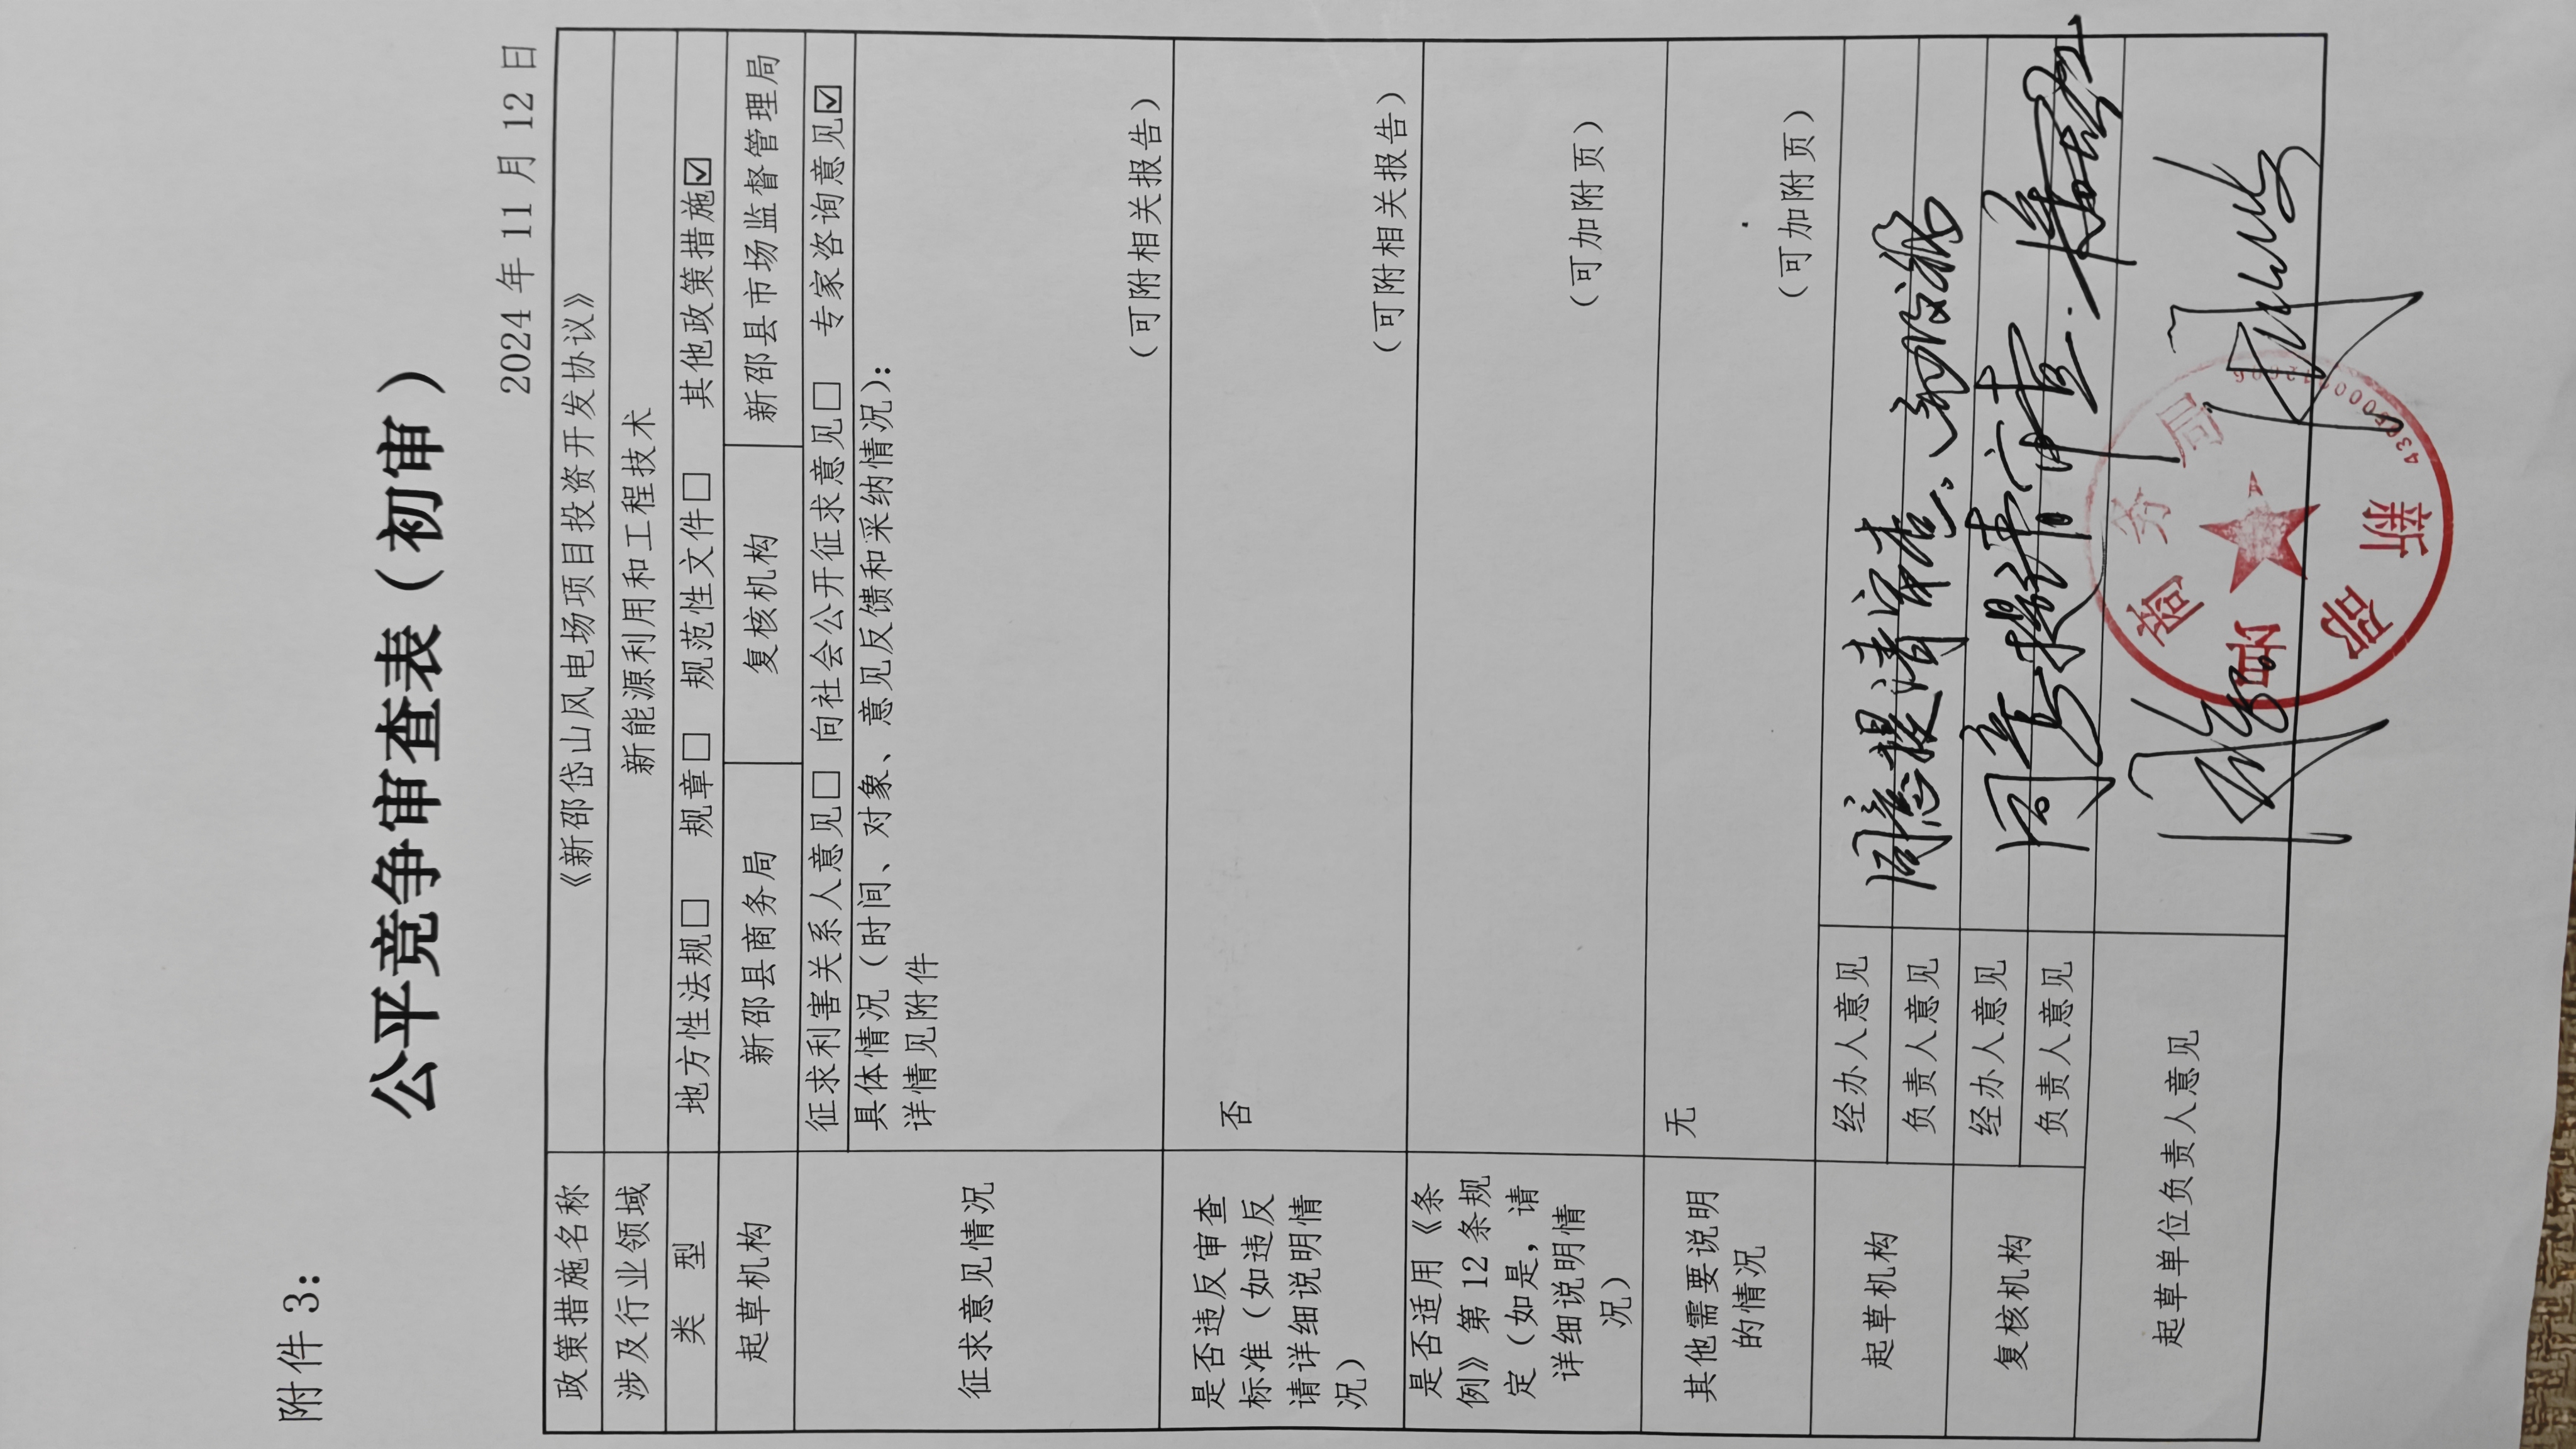 附件 3：
公平竞争审查表（初审）
2024 年 11 月 12 日
政策措施名称 《新邵岱山风电场项目投资开发协议》
涉及行业领域 新能源利用和工程技术
类 型 地方性法规□ 规章□ 规范性文件□ 其他政策措施☑
起草机构 新邵县商务局 复核机构 新邵县市场监督管理局
征求意见情况 征求利害关系人意见□ 向社会公开征求意见□ 专家咨询意见☑
具体情况（时间、对象、意见反馈和采纳情况）：
详情见附件
（可附相关报告）
是否违反审查
标准（如违反
请详细说明情
况）
否
（可附相关报告）
是否适用《条
例》第 12 条规
定（如是，请
详细说明情
况）
（可加附页）
其他需要说明
的情况
无
（可加附页）
起草机构 经办人意见 同意提请审查.
负责人意见
复核机构 经办人意见 同意提请审查.
负责人意见
起草单位负责人意见
新邵县商务局